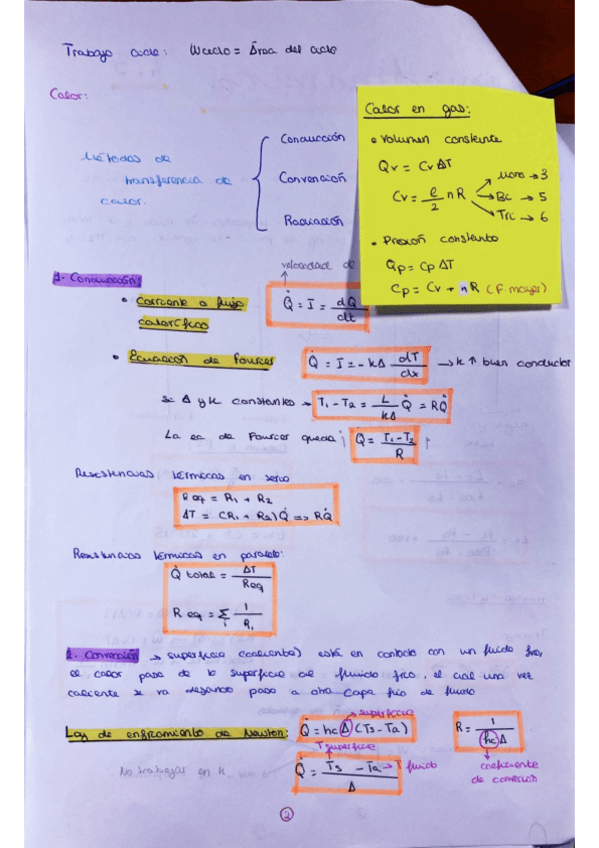 Trabajo ciclo: Wciclo = Área del ciclo
Calor:
Métodos de transferencia de calor.
Conducción
Convención
Radiación
Calor en gas:
• Volumen constante
Qv = Cv ΔT
Cv = e/2 n R
Mono → 3
Bc → 5
Tric → 6
• Presión constante
Qp = Cp ΔT
Cp = Cv + nR (F. mayer)
velocidad de
1- Conducción:
• Corriente o flujo calorífico
Q̇ = I = dQ/dt
• Ecuación de Fourier
Q̇ = I = -kA dT/dx → k ↑ buen conductor
Si A y k constantes → T₁ - T₂ = L/kA Q̇ = RQ̇
La ec de Fourier queda: Q̇ = T₁ - T₂/R
Resistencias térmicas en serie
Req = R₁ + R₂
ΔT = (R₁ + R₂) Q̇ => RQ̇
Resistencias térmicas en paralelo:
Q̇ total = ΔT/Req
Req = Σᵢ 1/Rᵢ
2- Convención → superficie (caliente) está en contacto con un fluido frío,
el calor pasa de la superficie al fluido frío, el cual una vez
caliente se va dejando paso a otra capa fría de fluido
superficie
Ley de enfriamiento de Newton: Q̇ = hcA (Ts - Ta)
R = 1/hcA
T superficie
Q̇ = Ts - Ta/A → T fluido
coeficiente de convección
No trabajar en K
2